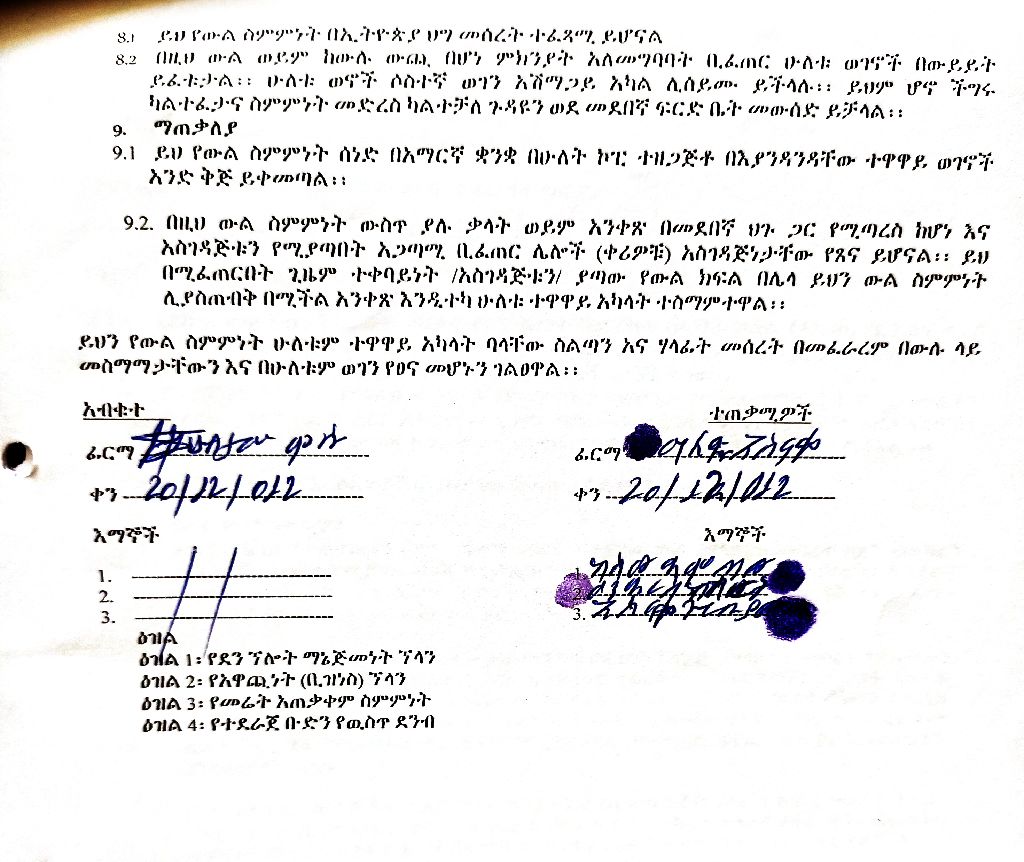 8.1 ይህ የውል ስምምነት በኢትዮጵያ ህግ መሰረት ተፈጻሚ ይሆናል
8.2 በዚህ ውል ወይም ከውሉ ውጪ በሆነ ምክንያት አለመግባባት ቢፈጠር ሁለቱ ወገኖች በውይይት
ይፈቱታል፡፡ ሁለቱ ወኖች ሶስተኛ ወገን አሸማጋይ አካል ሊሰይሙ ይችላሉ፡፡ ይህም ሆኖ ችግሩ
ካልተፈታና ስምምነት መድረስ ካልተቻለ ጉዳዩን ወደ መደበኛ ፍርድ ቤት መውሰድ ይቻላል፡፡
9. ማጠቃለያ
9.1 ይህ የውል ስምምነት ሰነድ በአማርኛ ቋንቋ በሁለት ኮፒ ተዘጋጅቶ በእያንዳንዳቸው ተዋዋይ ወገኖች
አንድ ቅጅ ይቀመጣል፡፡
9.2. በዚህ ውል ስምምነት ውስጥ ያሉ ቃላት ወይም አንቀጽ በመደበኛ ህጉ ጋር የሚጣረስ ከሆነ እና
አስገዳጅቱን የሚያጣበት አጋጣሚ ቢፈጠር ሌሎች (ቀሪዎቹ) አስገዳጅነታቸው የጸና ይሆናል፡፡ ይህ
በሚፈጠርበት ጊዜም ተቀባይነት /አስገዳጅቱን/ ያጣው የውል ክፍል በሌላ ይህን ውል ስምምነት
ሊያስጠብቅ በሚችል አንቀጽ እንዲተካ ሁለቱ ተዋዋይ አካላት ተስማምተዋል፡፡
ይህን የውል ስምምነት ሁለቱም ተዋዋይ አካላት ባላቸው ስልጣን እና ሃላፊት መሰረት በመፈራረም በውሉ ላይ
መስማማታቸውን እና በሁለቱም ወገን የፀና መሆኑን ገልፀዋል፡፡
አብቁተ ተጠቃሚዎች
ፊርማ ፊርማ
ቀን 20/12/012 ቀን 20/12/012
እማኞች እማኞች
1. 1.
2. 2.
3. 3.
ዕዝል
ዕዝል 1፡ የደን ኘሎት ማኔጅመነት ኘላን
ዕዝል 2፡ የአዋጪነት (ቢዝነስ) ኘላን
ዕዝል 3፡ የመሬት አጠቃቀም ስምምነት
ዕዝል 4፡ የተደራጀ ቡድን የዉስጥ ደንብ